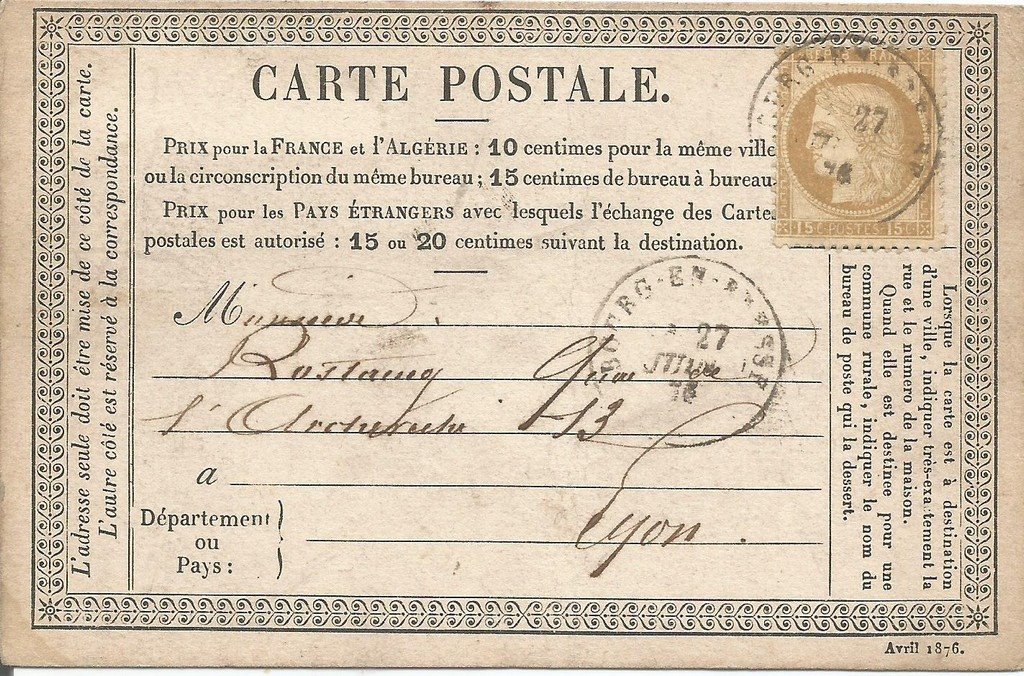 CARTE POSTALE.
PRIX pour la FRANCE et l'ALGÉRIE : 10 centimes pour la même ville
ou la circonscription du même bureau ; 15 centimes de bureau à bureau
PRIX pour les PAYS ÉTRANGERS avec lesquels l'échange des Carte
postales est autorisé : 15 ou 20 centimes suivant la destination.
L'adresse seule doit être mise de ce côté de la carte.
L'autre côté est réservé à la correspondance.
15 C. POSTES 15 C.
27
76
BOURG-EN-BRESSE
27
JUIN
76
Monsieur
Rostaing Quai de
l'Archevêché 13
à
Lyon.
Département
ou
Pays :
Lorsque la carte est à destination
d'une ville, indiquer très-exactement la
rue et le numero de la maison.
Quand elle est destinée pour une
commune rurale, indiquer le nom du
bureau de poste qui la dessert.
Avril 1876.